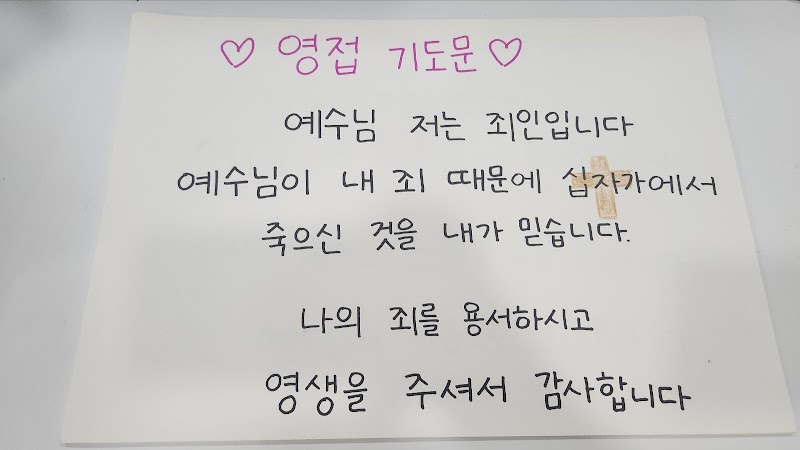 ♡ 영접 기도문 ♡
예수님 저는 죄인입니다
예수님이 내 죄 때문에 십자가에서
죽으신 것을 내가 믿습니다.
나의 죄를 용서하시고
영생을 주셔서 감사합니다